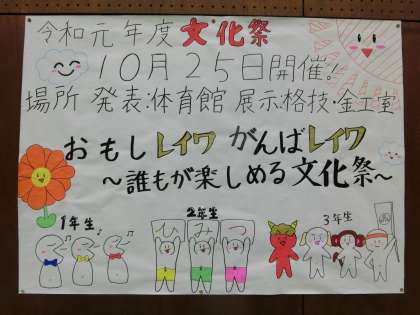 令和元年度 文化祭
10月25日開催!
場所 発表:体育館 展示:格技・金工室
おもしレイワ がんばレイワ
～誰もが楽しめる文化祭～
1年生
2年生
3年生
ひみつ